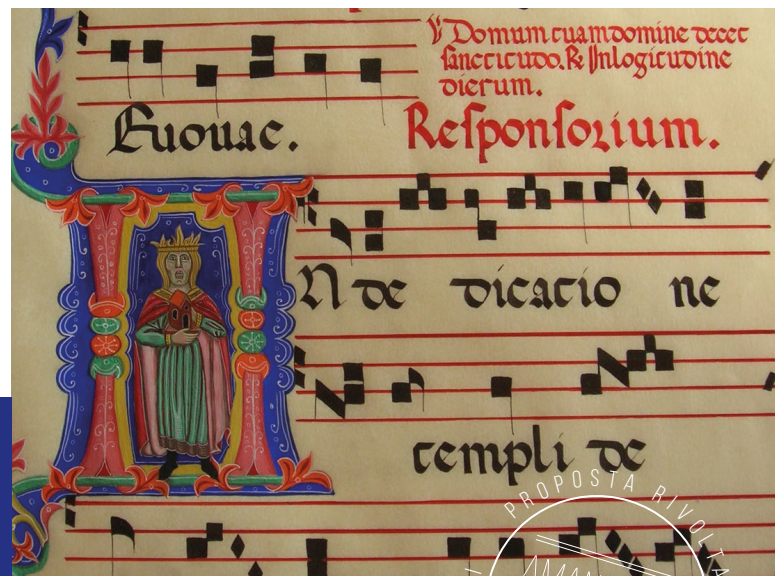 ℣ Domum tuam domine decet
ſanctitudo. ℟ Inlogitudine
dierum.
Euouae. Reſponſorium.
N de dicatio ne
templi de
PROPOSTA RIVOLTA